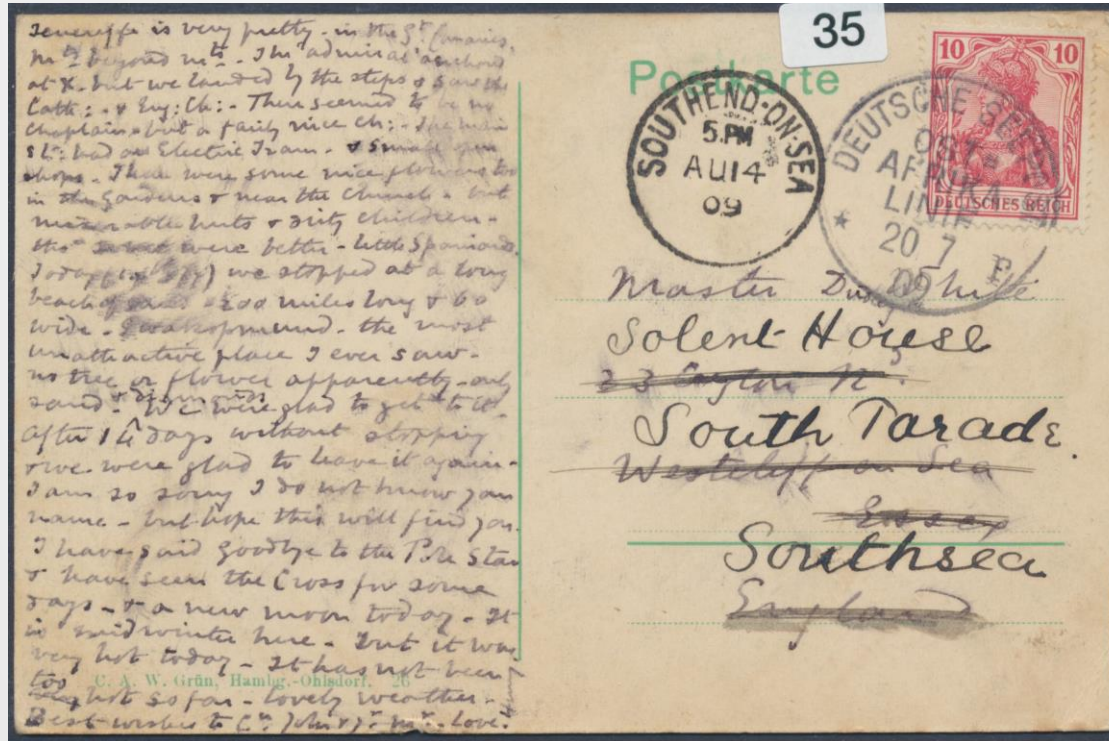 Teneriffe is very pretty - in the Gt. Canaries,
Mts beyond mts. The admiral anchored
at X. but we landed by the steps & saw the
Cath: - & Eng: Ch: - There seemed to be no
Chaplain - but a fairly nice Ch: - The main
St: had an Electric Tram - &
shops - There were some nice flowers too
in the Gardens & near the Church - but
miserable huts & dirty children -
tho' were better - little Spaniards.
Today we stopped at a long
beach of 200 miles long & 60
wide - Swakopmund - the most
unattractive place I ever saw -
no tree or flower apparently - only
sand & diamonds. We were glad to get to it -
after 14 days without stopping
& we were glad to leave it again -
I am so sorry I do not know your
name - but hope this will find you.
I have said goodbye to the Pole Star
& have seen the Cross for some
days - & a new moon today - It
is midwinter here - but it was
very hot today - It has not been
too hot so far - lovely weather -
Best wishes to John & Love.
C. A. W. Grün, Hambg.-Ohlsdorf. 26
35
Postkarte
SOUTHEND-ON-SEA
5.PM
AU 14
09
DEUTSCHE SEEPOST
OST-
AFRIKA
LINIE
20 7
09
10 10
DEUTSCHES REICH
Master White
Solent House
23 Rd.
South Parade.
Westcliff on Sea
Essex
Southsea
England